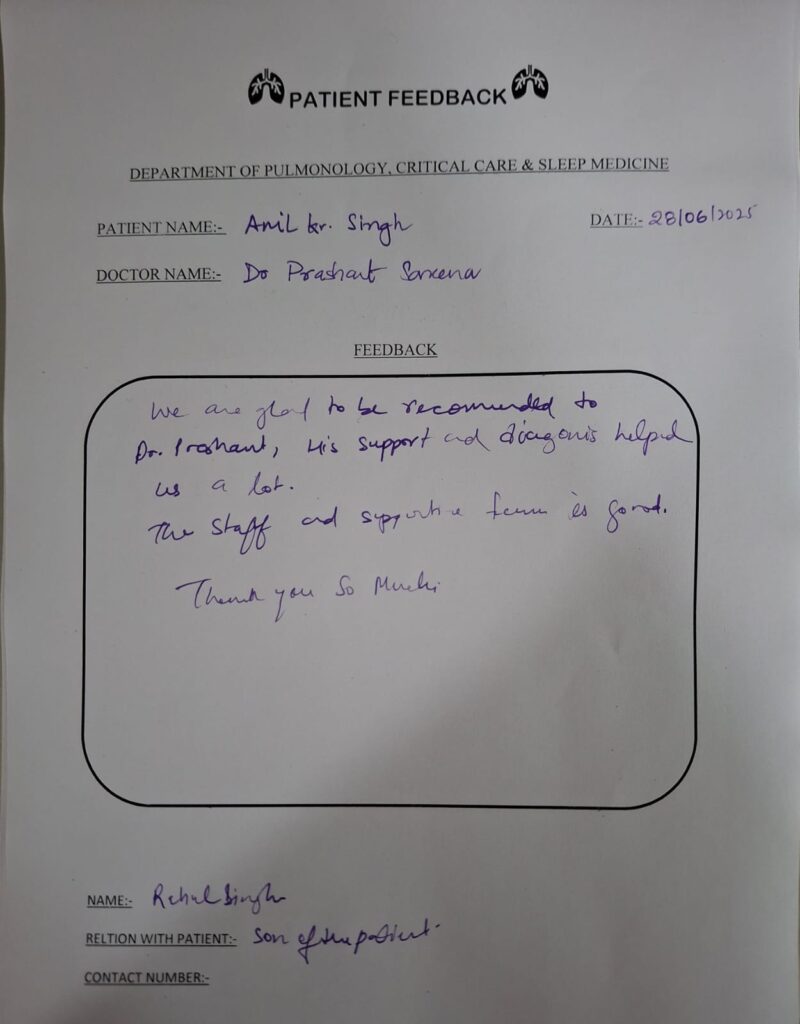 PATIENT FEEDBACK
DEPARTMENT OF PULMONOLOGY, CRITICAL CARE & SLEEP MEDICINE
PATIENT NAME:- Anil kr. Singh
DATE:- 28/06/2025
DOCTOR NAME:- Dr Prashant Saxena
FEEDBACK
We are glad to be recommended to
Dr. Prashant, His support and diagonis helped
us a lot.
The staff and supportive team is good.
Thank you So Much.
NAME:- Rahul Singh
RELTION WITH PATIENT:- Son of the patient.
CONTACT NUMBER:-